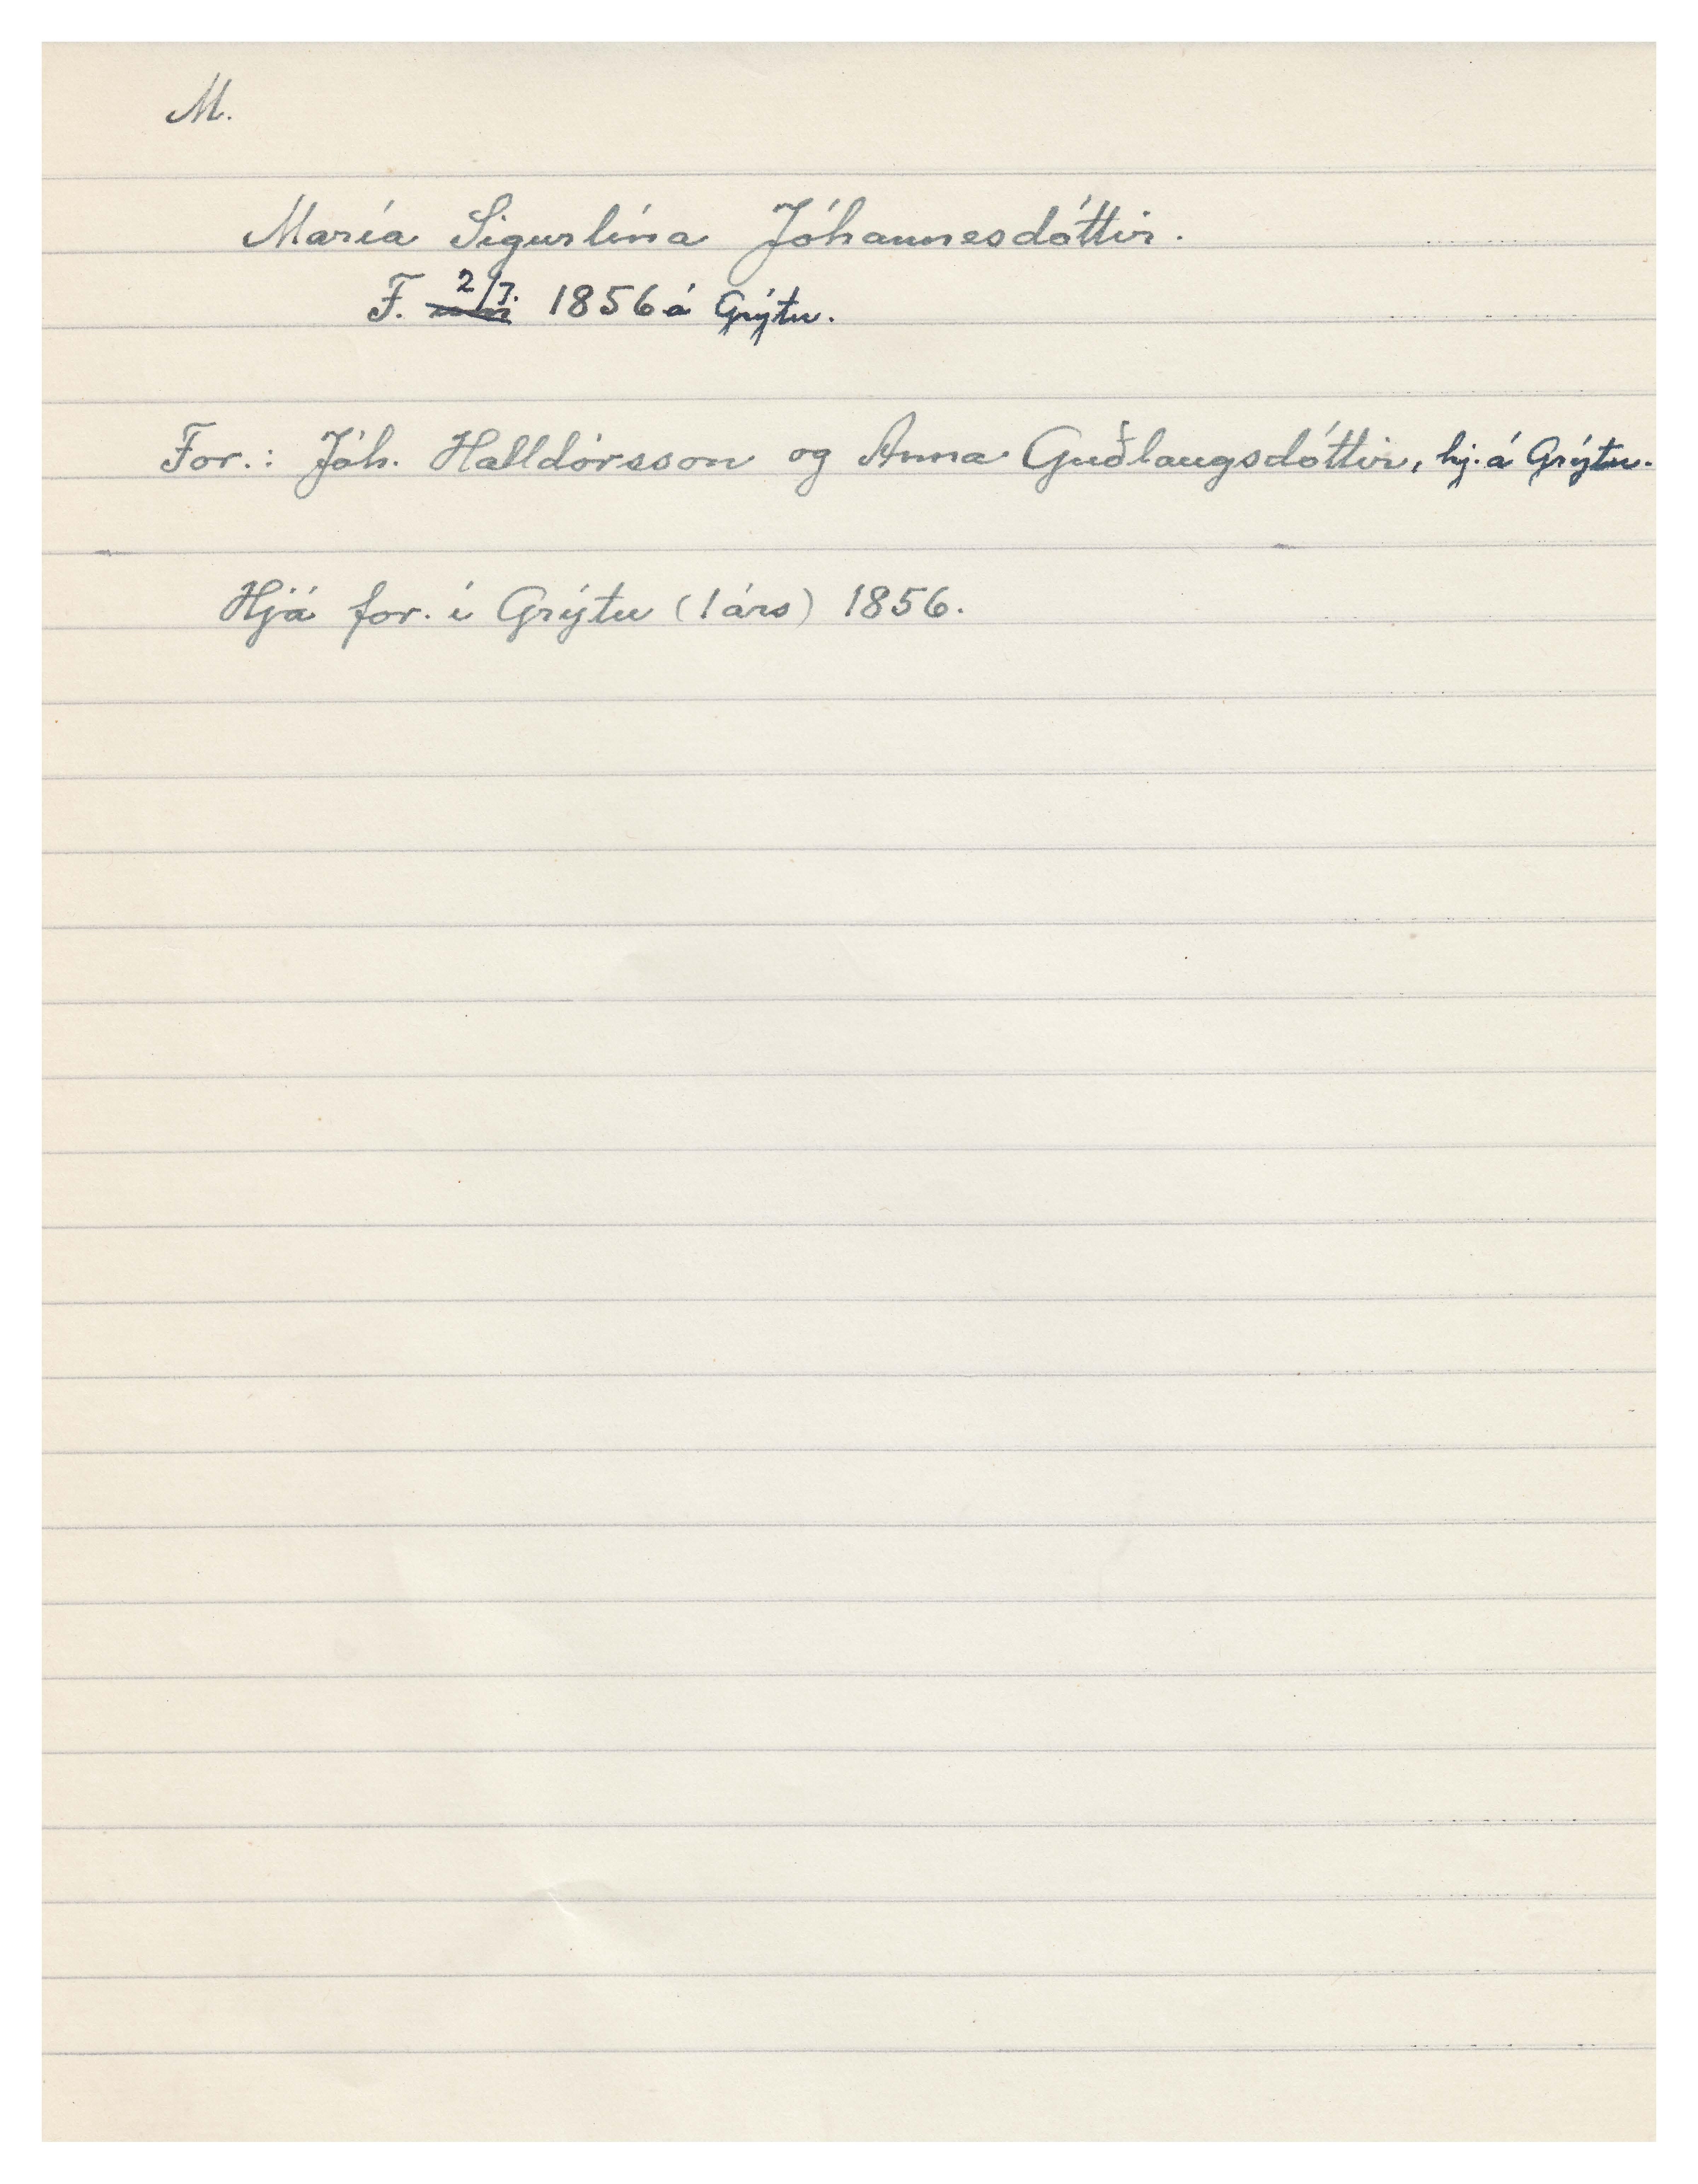 M.
María Sigurlína Jóhannesdóttir.
F. 2/7. 1856 á Grýtu.
For.: Jóh. Halldórsson og Anna Guðlaugsdóttir, hj. á Grýtu.
Hjá for. í Grýtu (1 árs) 1856.